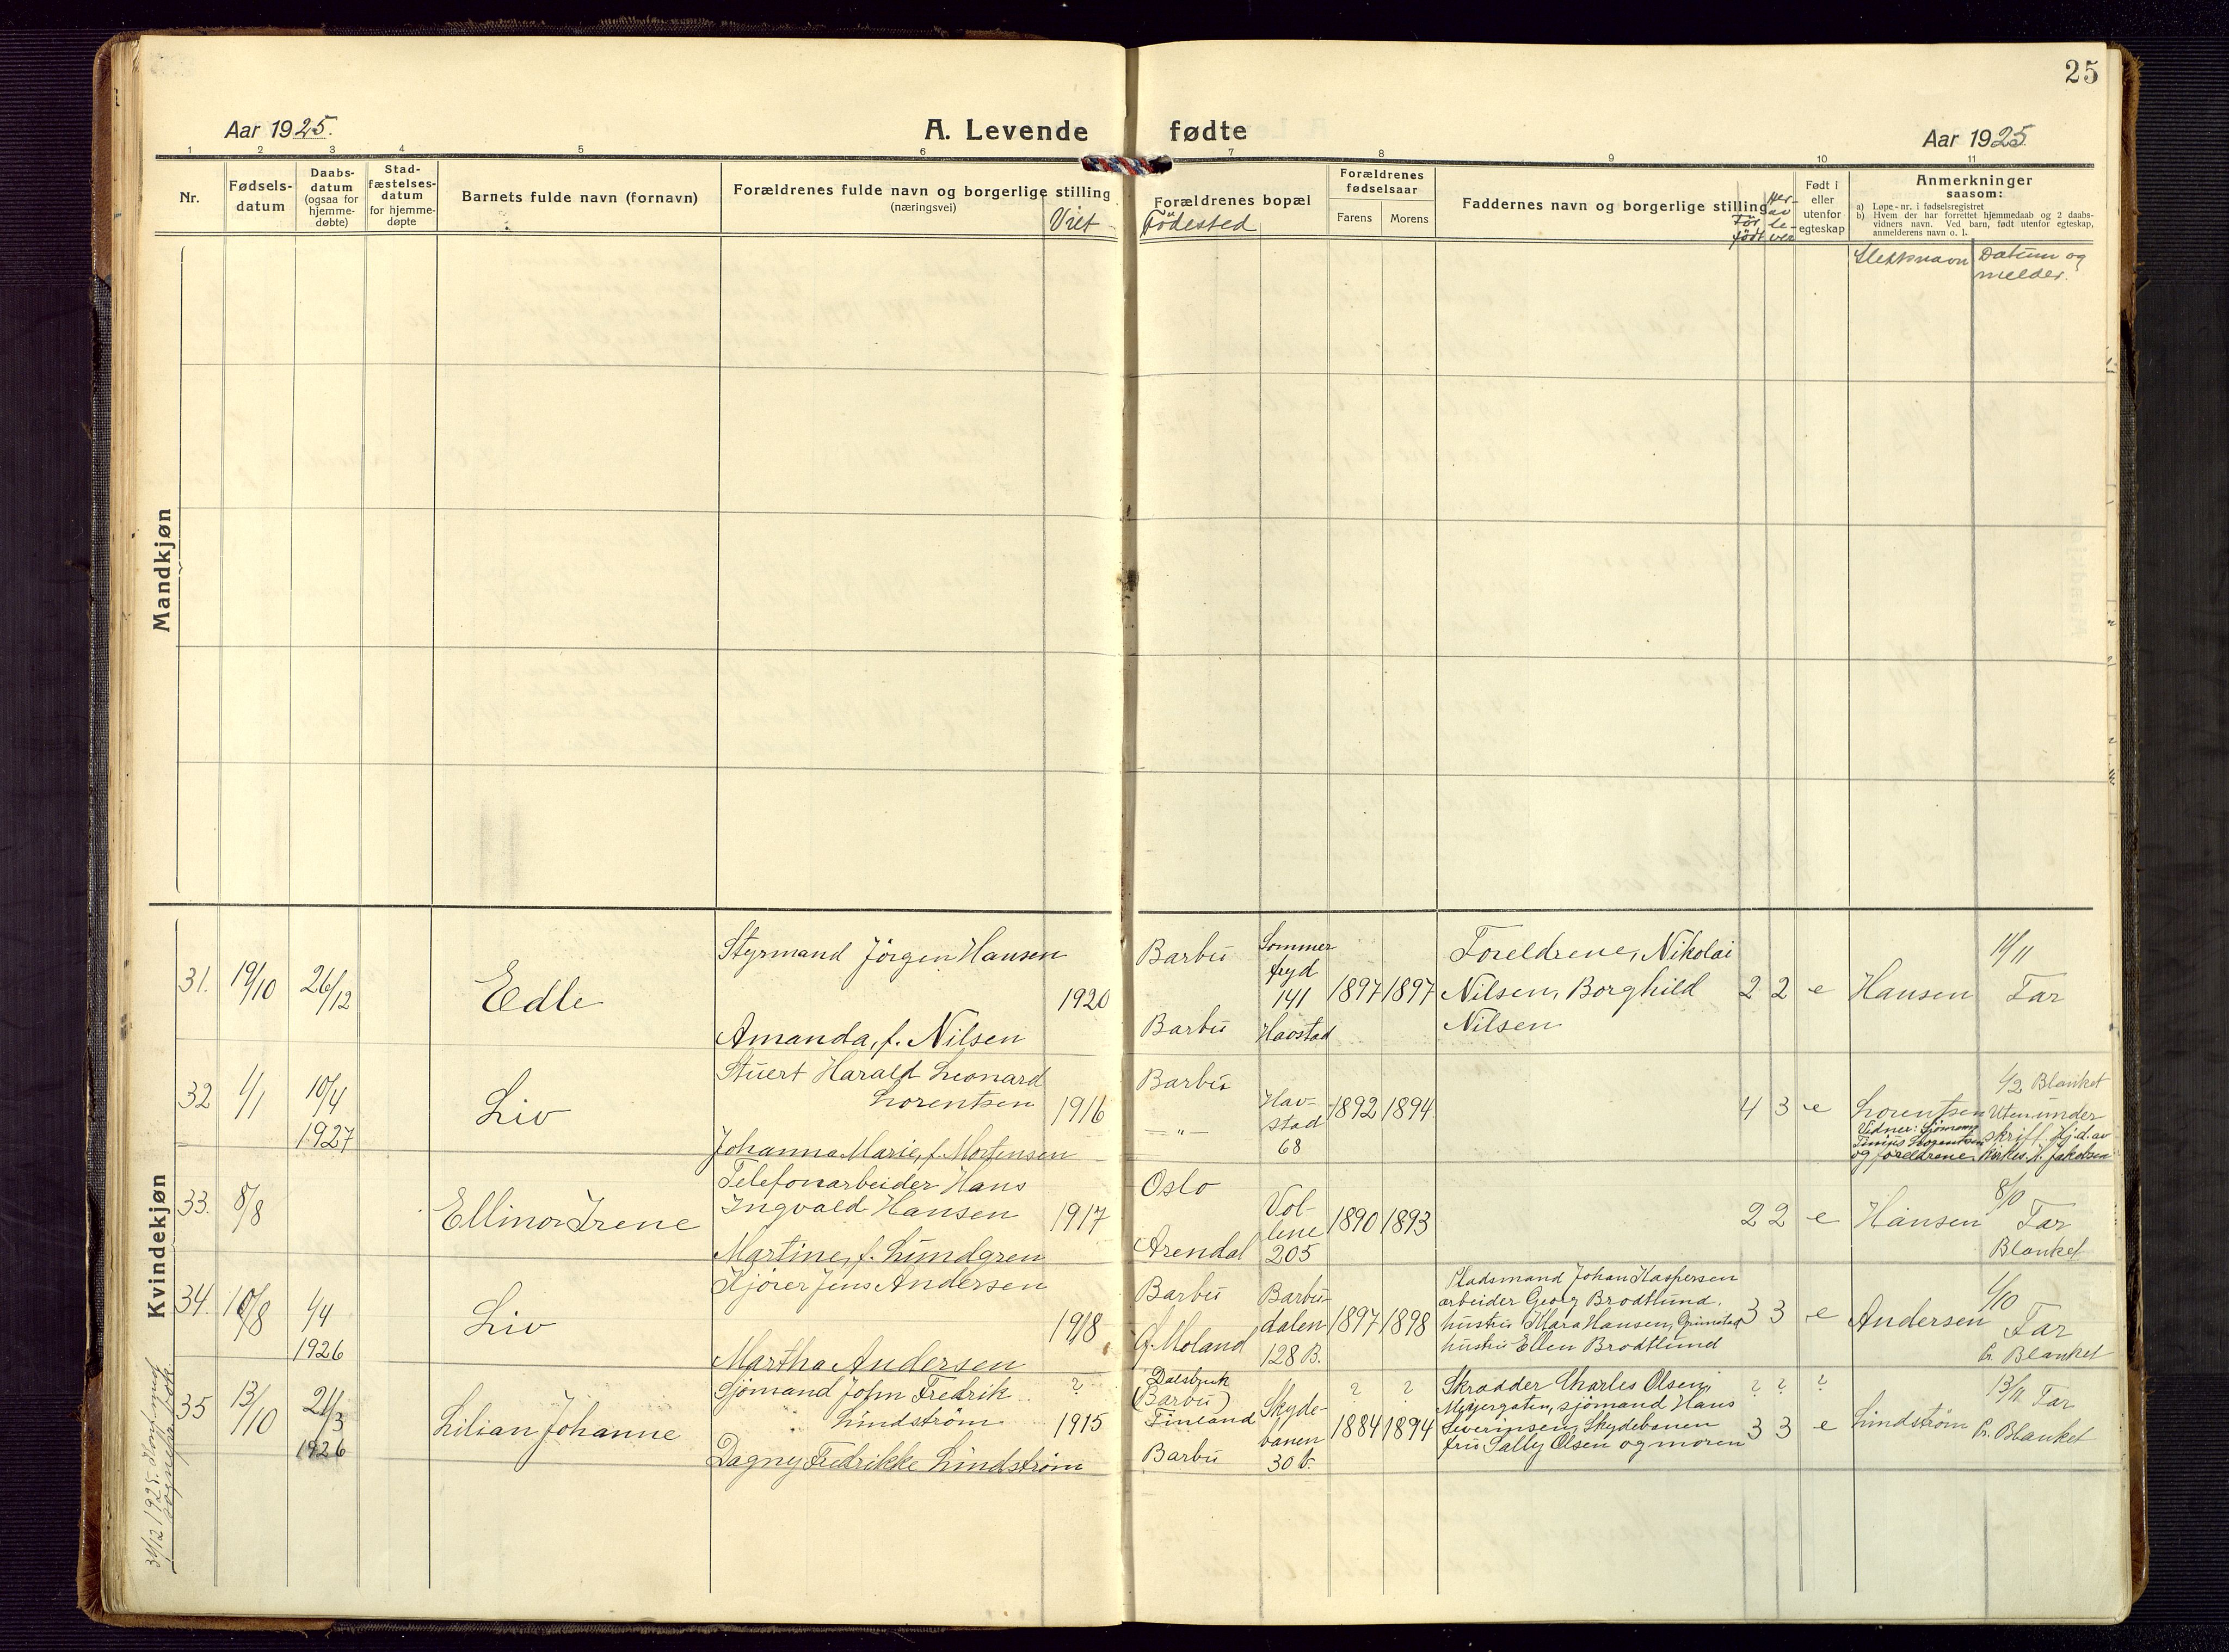 25
Aar 1925.
A. Levende fødte
Aar 1925
1 2 3 4 5 6 7 8 9 10 11
Nr.
Fødsels-
datum
Daabs-
datum
(ogsaa for
hjemme-
døbte)
Stad-
fæstelses-
datum
for hjemme-
døpte
Barnets fulde navn (fornavn)
Forældrenes fulde navn og borgerlige stilling
(næringsvei)
Viet
Forældrenes bopæl
Födested
Forældrenes
fødselsaar
Farens Morens
Faddernes navn og borgerlige stilling
För
født
Her-
av
le-
ver
Født i
eller
utenfor
egteskap
Anmerkninger
saasom:
a) Løpe-nr. i fødselsregistret
b) Hvem der har forrettet hjemmedaab og 2 daabs-
vidners navn. Ved barn, født utenfor egteskap,
anmelderens navn o. l.
Slektsnavn
Datum og
melder.
Mandkjøn
Kvindekjøn
31. 19/10 26/12
Edle
Styrmand Jörgen Hansen
1920
Amanda, f. Nilsen
Barbu
Barbu
Sommer
fryd
141
Havstad
1897 1897
Foreldrene, Nikolai
Nilsen, Borghild
Nilsen
2 2 e
Hansen
11/11
Far
32 1/1 10/4
1927
Liv
Stuert Harald Leonard
Lorentsen
1916
Johanna Marie, f. Mortensen
Barbu
— " —
Hav-
stad
68
1892 1894
4 3 e
Lorentsen
Vidner: Sjömann
og foreldrene
1/2 Blanket
Uten under
skrift. Hj.d. av
H. Jakobsen
33. 8/8
Ellinor Irene
Telefonarbeider Hans
Ingvald Hansen
1917
Martine, f. Lundgren
Oslo
Arendal
Vol-
lene
205
1890 1893
2 2 e
Hansen
Far
Blanket
34. 10/8 1/4
1926
Liv
Hjörer Jens Andersen
1918
Martha Andersen
Barbu
Ø. Moland
Barbu-
dalen
128 B.
1897 1898
Pladsmand Johan Kaspersen
arbeider Georg Brodtlund,
hustru Mara Hansen, Grimstad
hustru Ellen Brodtlund
3 3 e
Andersen
1/10
Far
Pr. Blanket
35 13/10 21/3
1926
Lilian Johanne
Sjömand John Fredrik
Lindström
?
1915
Dagny Fredrikke Lindström
Dalsbruk
(Barbu)
Finland
Barbu
Skyde-
banen
30 b.
? ?
1884 1894
Skradder Charles Olsen,
sjömand Hans
Severinsen, Skydebanen
fru Sally Olsen og moren
? ? ?
3 3 e
Lindström
13/11 Far
Pr. Blanket
31/12 1925.